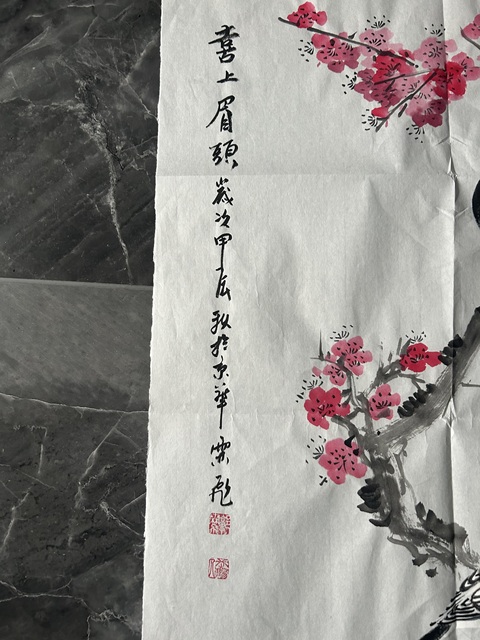 喜上眉頭歲次甲辰秋於京華